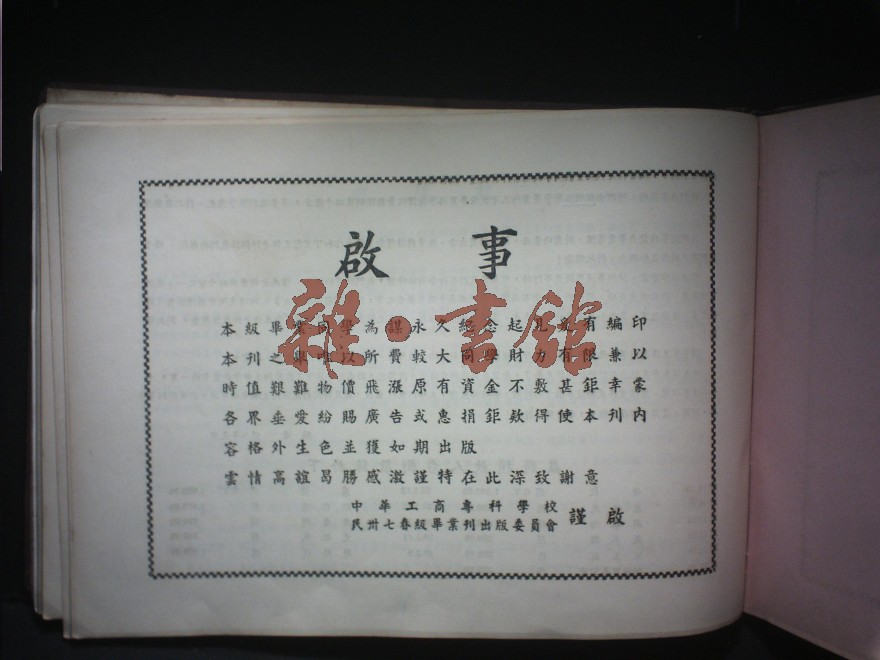 啟事
本級畢業同學為謀永久紀念起見爰有編印
本刊之舉唯以所費較大同學財力有限兼以
時值艱難物價飛漲原有資金不敷甚鉅幸蒙
各界垂愛紛賜廣告或惠捐鉅欵得使本刊內
容格外生色並獲如期出版
雲情高誼曷勝感激謹特在此深致謝意
中華工商專科學校
民卅七春級畢業刊出版委員會
謹啟
雜·書館